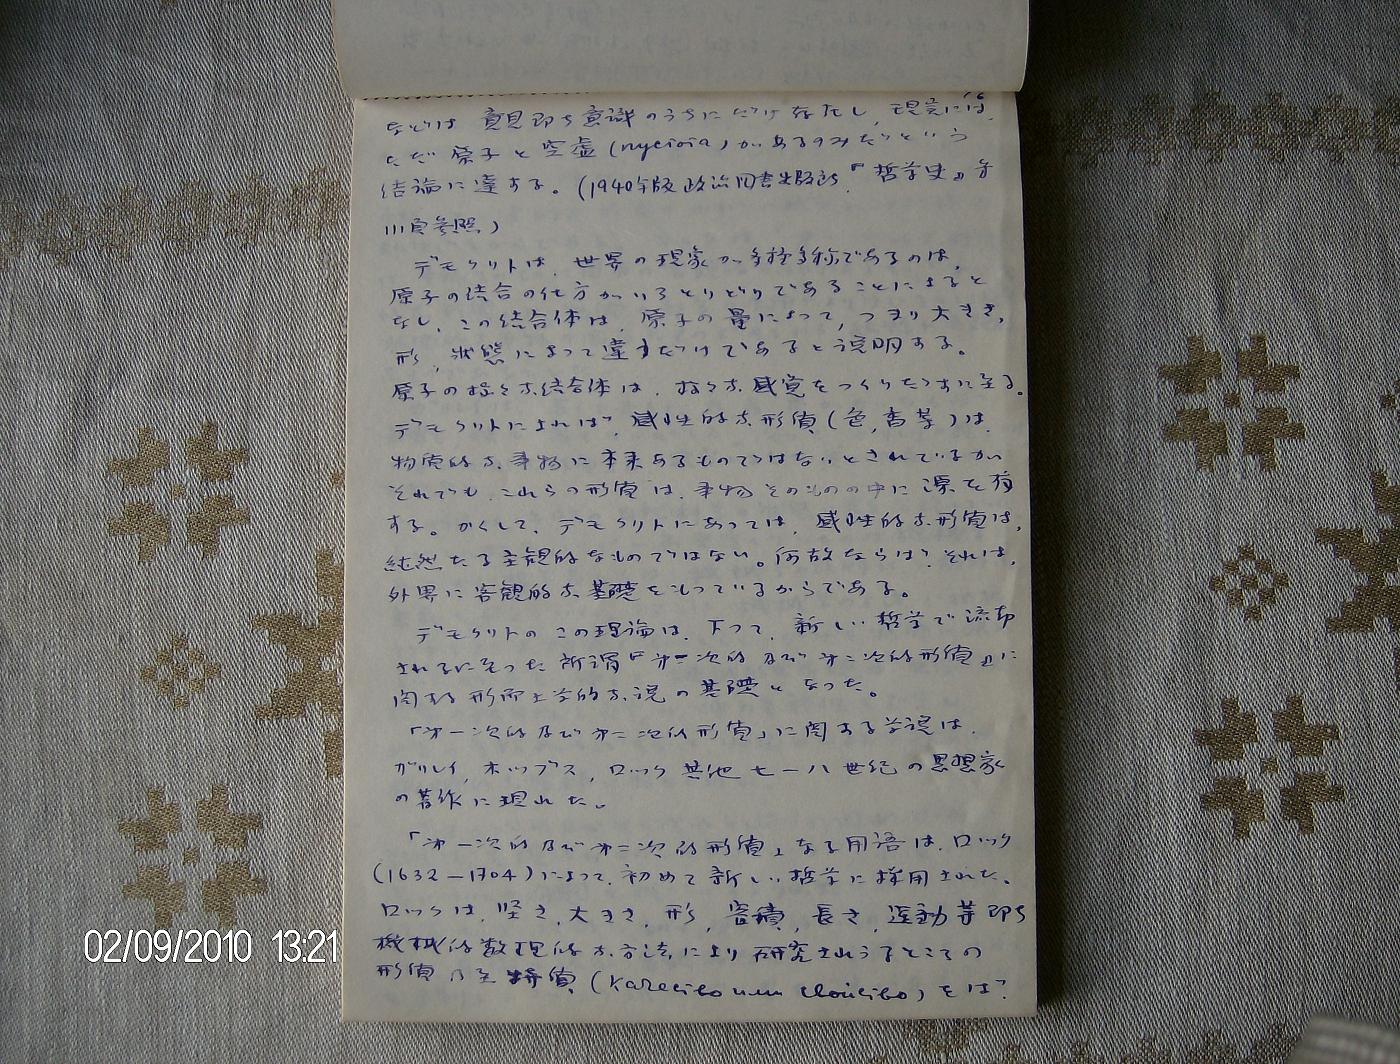 などは 意見即ち意識のうちにだけ存在し、現実には、
ただ 原子と空虚(пустота)があるのみだという
結論に達する。(1940年版 政治図書出版所『哲学史』第
111頁参照)
デモクリトは、世界の現象が多種多様であるのは、
原子の結合の仕方がいろとりどりであることによると
なし、この結合体は、原子の量によって、つまり大きさ、
形、状態によって違うだけであると説明する。
原子の様々な結合体は、様々な感覚をつくりだすに至る。
デモクリトによれば、感性的な形質(色,香等)は、
物質的な事物に本来あるものではないとされているが
それでも、これらの形質は、事物そのものの中に源を有
する。かくして、デモクリトにあっては、感性的な形質は、
純然たる主観的なものではない。何故ならば、それは、
外界に客観的な基礎をもっているからである。
デモクリトのこの理論は、下って、新しい哲学で流布
されるに至った所謂『第一次的及び第二次的形質』に
関する形而上学的な説の基礎となった。
「第一次的及び第二次的形質」に関する学説は、
ガリレイ,ホッブス,ロック其他七—八世紀の思想家
の著作に現れた。
「第一次的及び第二次的形質」なる用語は、ロック
(1632—1704)によって、初めて新しい哲学に採用された。
ロックは、堅さ,大きさ,形,容積,長さ,運動等即ち
機械的数理的な方法により研究されうるところの
形質乃至特質(качество или свойство)をば、
02/09/2010 13:21